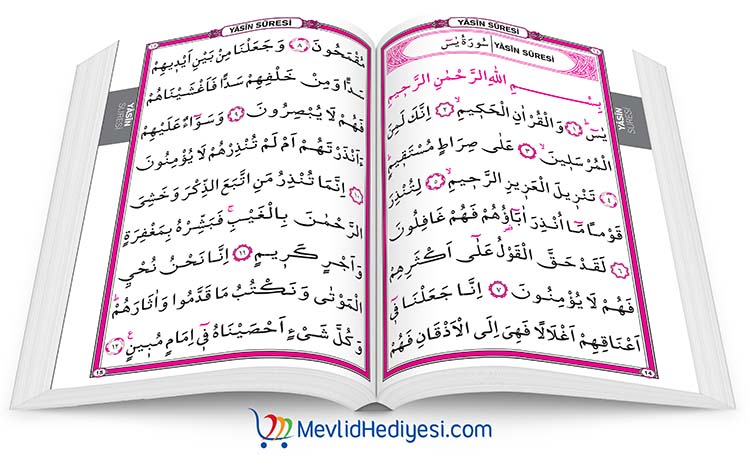 YÂSÎN SÛRESİ
سُورَةُ يٰسٓ | YÂSÎN SÛRESİ
بِسْمِ اللّٰهِ الرَّحْمٰنِ الرَّحٖيمِ
يٰسٓۜ ﴿١﴾ وَالْقُرْاٰنِ الْحَكٖيمِۙ ﴿٢﴾ اِنَّكَ لَمِنَ
الْمُرْسَلٖينَۙ ﴿٣﴾ عَلٰى صِرَاطٍ مُسْتَقٖيمٍۜ
﴿٤﴾ تَنْزٖيلَ الْعَزٖيزِ الرَّحٖيمِۙ ﴿٥﴾ لِتُنْذِرَ
قَوْمًا مَٓا اُنْذِرَ اٰبَٓاؤُ۬هُمْ فَهُمْ غَافِلُونَ
﴿٦﴾ لَقَدْ حَقَّ الْقَوْلُ عَلٰٓى اَكْثَرِهِمْ
فَهُمْ لَا يُؤْمِنُونَ ﴿٧﴾ اِنَّا جَعَلْنَا فٖٓى
اَعْنَاقِهِمْ اَغْلَالًا فَهِىَ اِلَى الْاَذْقَانِ فَهُمْ
14
YÂSÎN
SÛRESİ
YÂSÎN SÛRESİ
مُقْمَحُونَ ﴿٨﴾ وَجَعَلْنَا مِنْ بَيْنِ اَيْدٖيهِمْ
سَدًّا وَمِنْ خَلْفِهِمْ سَدًّا فَاَغْشَيْنَاهُمْ
فَهُمْ لَا يُبْصِرُونَ ﴿٩﴾ وَسَوَٓاءٌ عَلَيْهِمْ
ءَاَنْذَرْتَهُمْ اَمْ لَمْ تُنْذِرْهُمْ لَا يُؤْمِنُونَ
﴿١٠﴾ اِنَّمَا تُنْذِرُ مَنِ اتَّبَعَ الذِّكْرَ وَخَشِىَ
الرَّحْمٰنَ بِالْغَيْبِۚ فَبَشِّرْهُ بِمَغْفِرَةٍ
وَاَجْرٍ كَرٖيمٍ ﴿١١﴾ اِنَّا نَحْنُ نُحْيِ
الْمَوْتٰى وَنَكْتُبُ مَا قَدَّمُوا وَاٰثَارَهُمْۜ
وَكُلَّ شَىْءٍ اَحْصَيْنَاهُ فٖٓى اِمَامٍ مُبٖينٍ ﴿١٢﴾
15
YÂSÎN
SÛRESİ
MevlidHediyesi.com